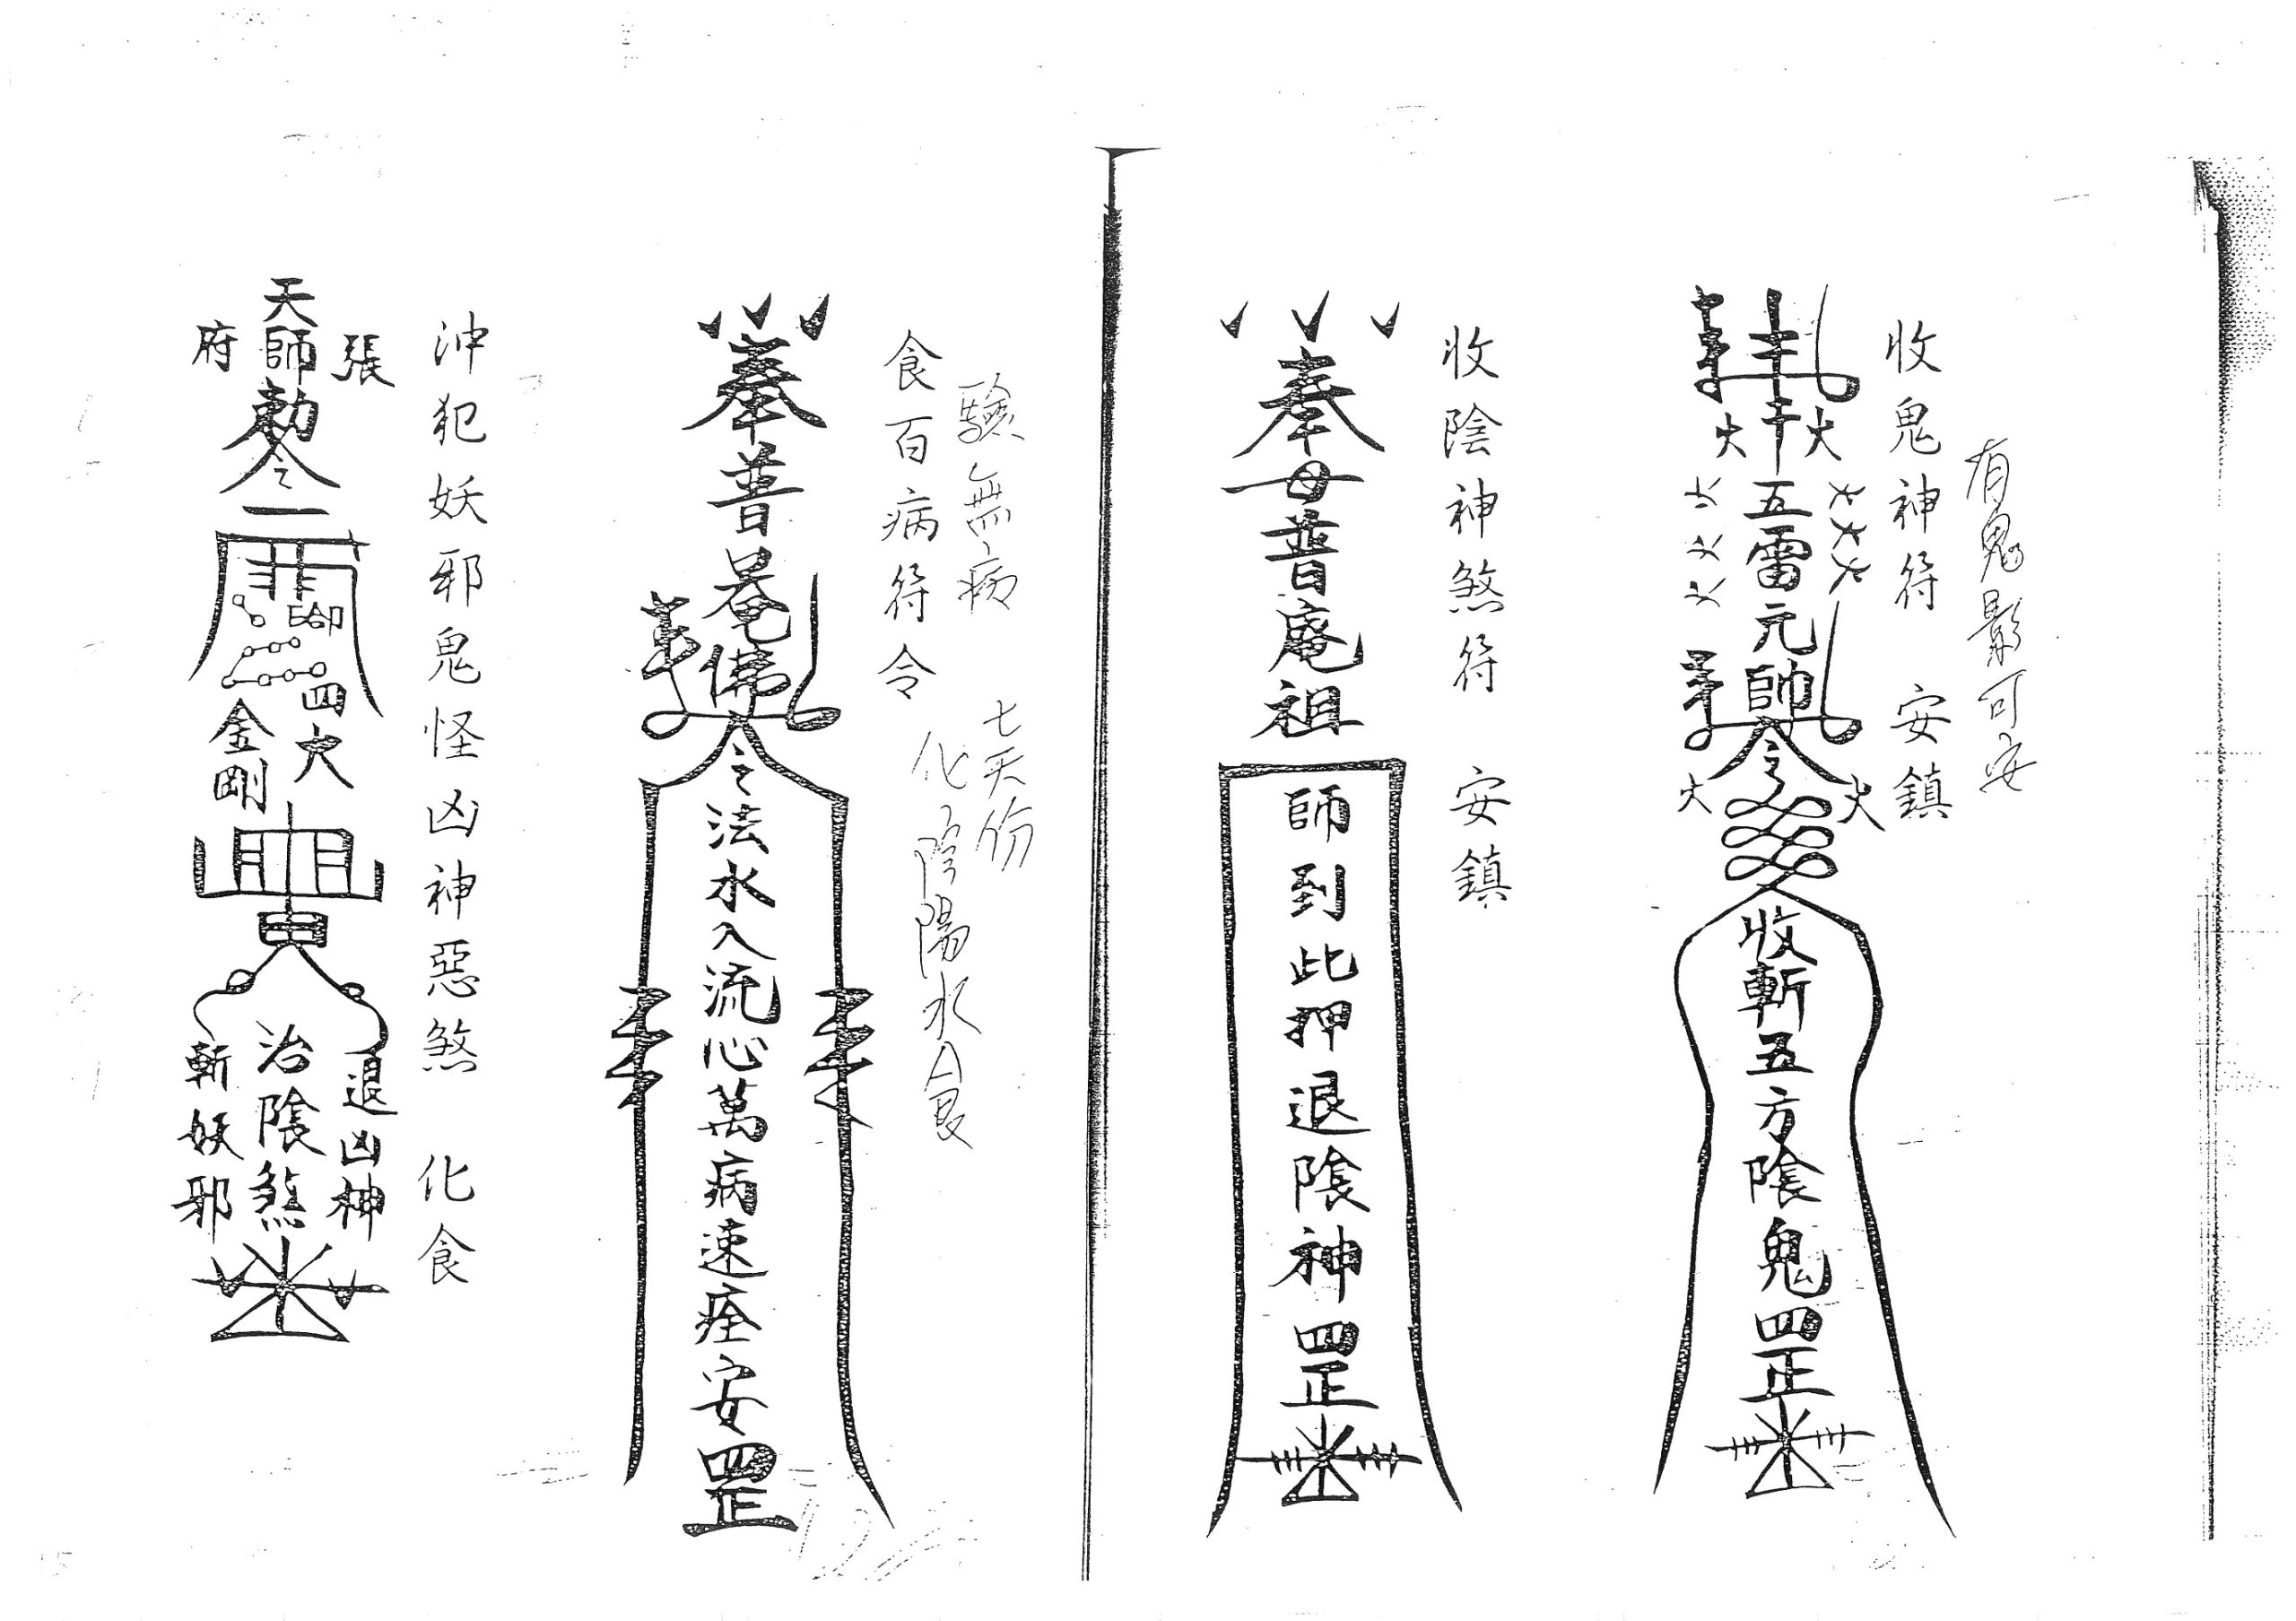 有鬼影可安
收鬼神符 安鎮
五雷元帥令
收斬五方陰鬼罡
火火
火火
收陰神煞符 安鎮
奉母普庵祖
師到此押退陰神罡
驗無病
七天份
化陰陽水食
食百病符令
奉普庵佛令
法水入流心萬病速痊安罡
沖犯妖邪鬼怪凶神惡煞 化食
張
天師勅令
府
四大
金剛
退凶神
治陰煞
斬妖邪